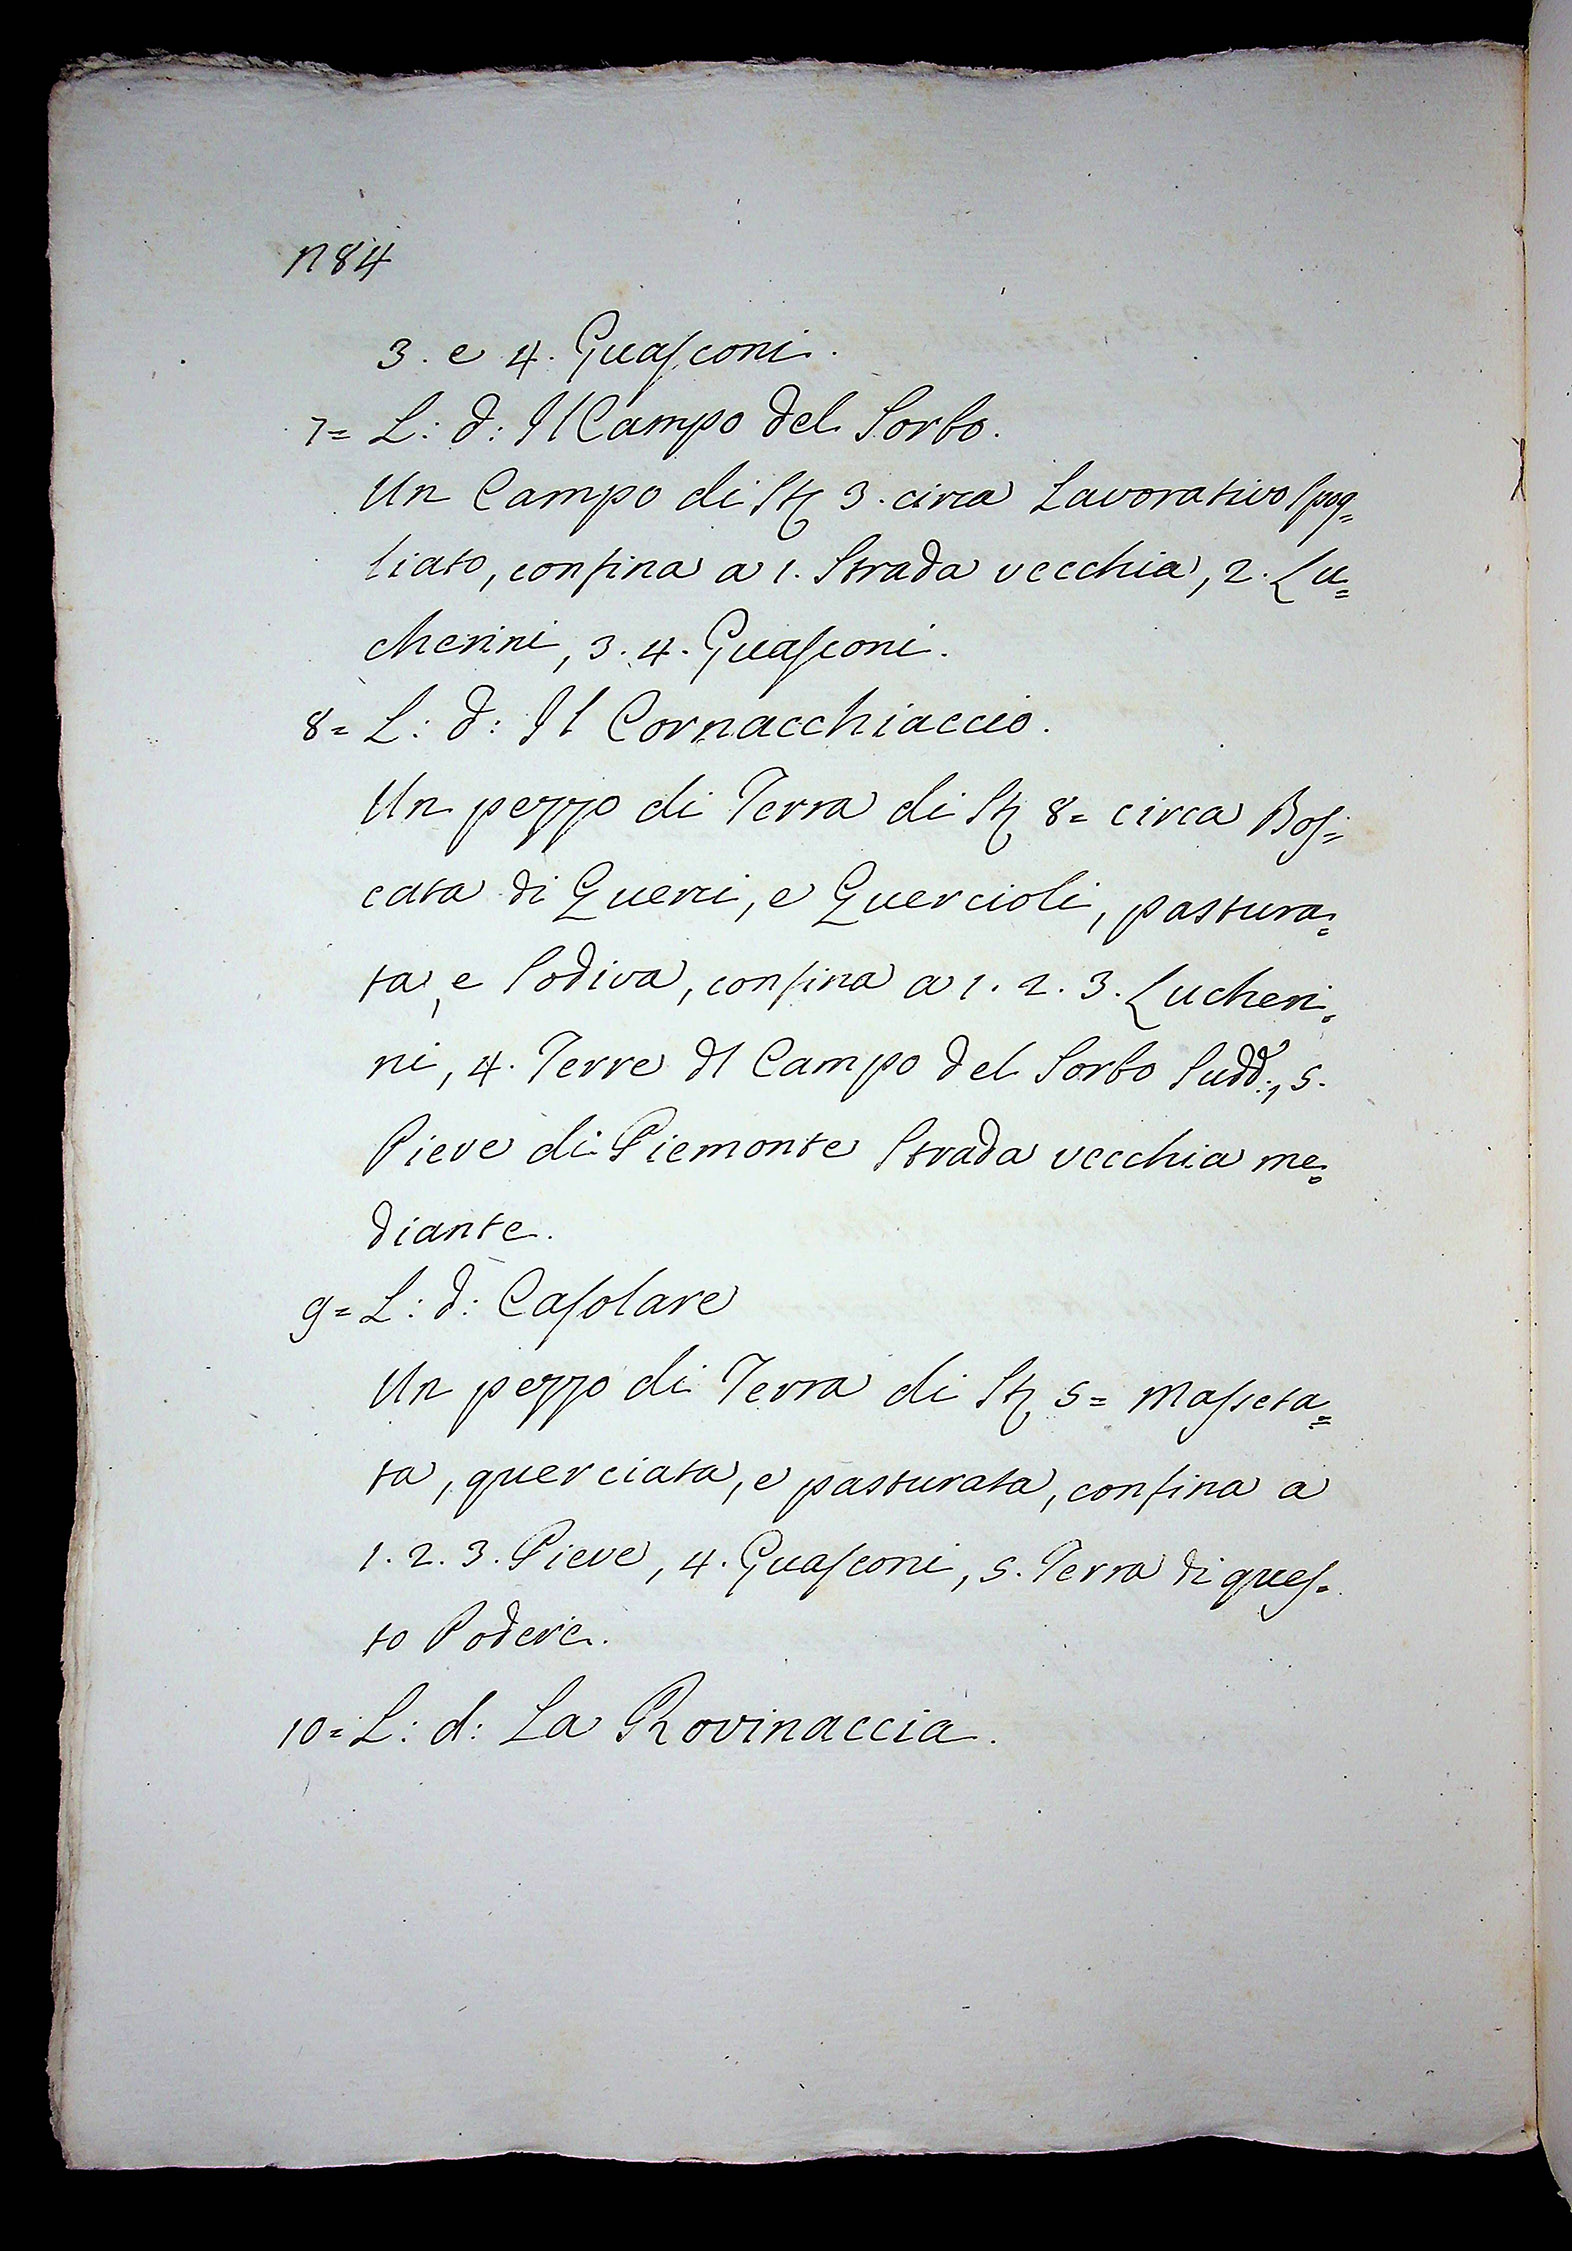 n 84
3. e 4. Guasconi.
7= L: d: Il Campo del Sorbo.
Un Campo di St 3. circa Lavorativo Spog=
liato, confina a 1. Strada vecchia, 2. Lu=
cherini, 3. 4. Guasconi.
8= L: d: Il Cornacchiaccio.
Un pezzo di Terra di St 8= circa Bos=
cata di Querci, e Quercioli, pastura=
ta, e Sodiva, confina a 1. 2. 3. Lucheri=
ni, 4. Terre dl Campo del Sorbo Sudd:, 5.
Pieve di Piemonte Strada vecchia me=
diante.
9= L: d: Casolare
Un pezzo di Terra di St 5= Masseta=
ta, querciata, e pasturata, confina a
1. 2. 3. Pieve, 4. Guasconi, 5. Terra di ques=
to Podere.
10= L: d: La Rovinaccia.